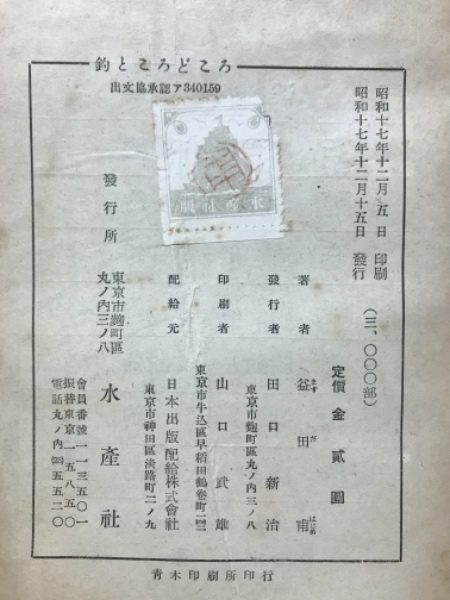 釣ところどころ
出文協承認ア340159
昭和十七年十二月五日 印刷
昭和十七年十二月十五日 發行
(三、〇〇〇部)
定價金貳圓
著者 益田甫
ますだ はじめ
發行者 田口新治
東京市麴町區丸ノ内三ノ八
印刷者 山口武雄
東京市牛込區早稻田鶴卷町一四二
配給元 日本出版配給株式會社
東京市神田區淡路町二ノ九
發行所
東京市麴町區
丸ノ内三ノ八
水產社
會員番號一一三五〇一
振替東京一五八五〇
電話丸ノ内㈣五五二〇
水產社版
青木印刷所印行